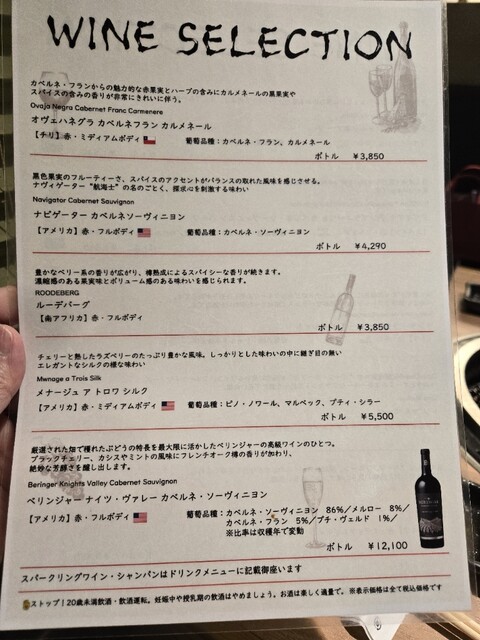 WINE SELECTION
カベルネ・フランからの魅力的な赤果実とハーブの含みにカルメネールの黒果実や
スパイスの含みの香りが非常にきれいに伴う。
Ovaja Negra Cabernet Franc Carmenere
オヴェハネグラ カベルネフラン カルメネール
【チリ】赤・ミディアムボディ 葡萄品種：カベルネ・フラン、カルメネール
ボトル ￥3,850
黒色果実のフルーティーさ、スパイスのアクセントがバランスの取れた風味を感じさせる。
ナヴィゲーター“航海士”の名のごとく、探求心を刺激する味わい
Navigator Cabernet Sauvignon
ナビゲーター カベルネソーヴィニヨン
【アメリカ】赤・フルボディ 葡萄品種：カベルネ・ソーヴィニヨン
ボトル ￥4,290
豊かなベリー系の香りが広がり、樽熟成によるスパイシーな香りが続きます。
濃縮感のある果実味とボリューム感のある味わいを感じられます。
RODDEBERG
ルーデバーグ
【南アフリカ】赤・フルボディ
ボトル ￥3,850
チェリーと熟したラズベリーのたっぷり豊かな風味。しっかりとした味わいの中に継ぎ目の無い
エレガントなシルクの様な味わい
Mwnage a Trois Silk
メナージュ ア トロワ シルク
【アメリカ】赤・ミディアムボディ 葡萄品種：ピノ・ノワール、マルベック、プティ・シラー
ボトル ￥5,500
厳選された畑で穫れたぶどうの特長を最大限に活かしたベリンジャーの高級ワインのひとつ。
ブラックチェリー、カシスやミントの風味にフレンチオーク樽の香りが加わり、
絶妙な芳醇さを醸し出します。
Beringer Knights Valley Cabernet Sauvignon
ベリンジャー ナイツ・ヴァレー カベルネ・ソーヴィニヨン
【アメリカ】赤・フルボディ 葡萄品種：カベルネ・ソーヴィニヨン 86%／メルロー 8%／
カベルネ・フラン 5%／プチ・ヴェルド 1%／
※比率は収穫年で変動
ボトル ￥12,100
スパークリングワイン・シャンパンはドリンクメニューに記載御座います
ストップ！20歳未満飲酒・飲酒運転。妊娠中や授乳期の飲酒はやめましょう。お酒は楽しく適量で。※表示価格は全て税込価格です